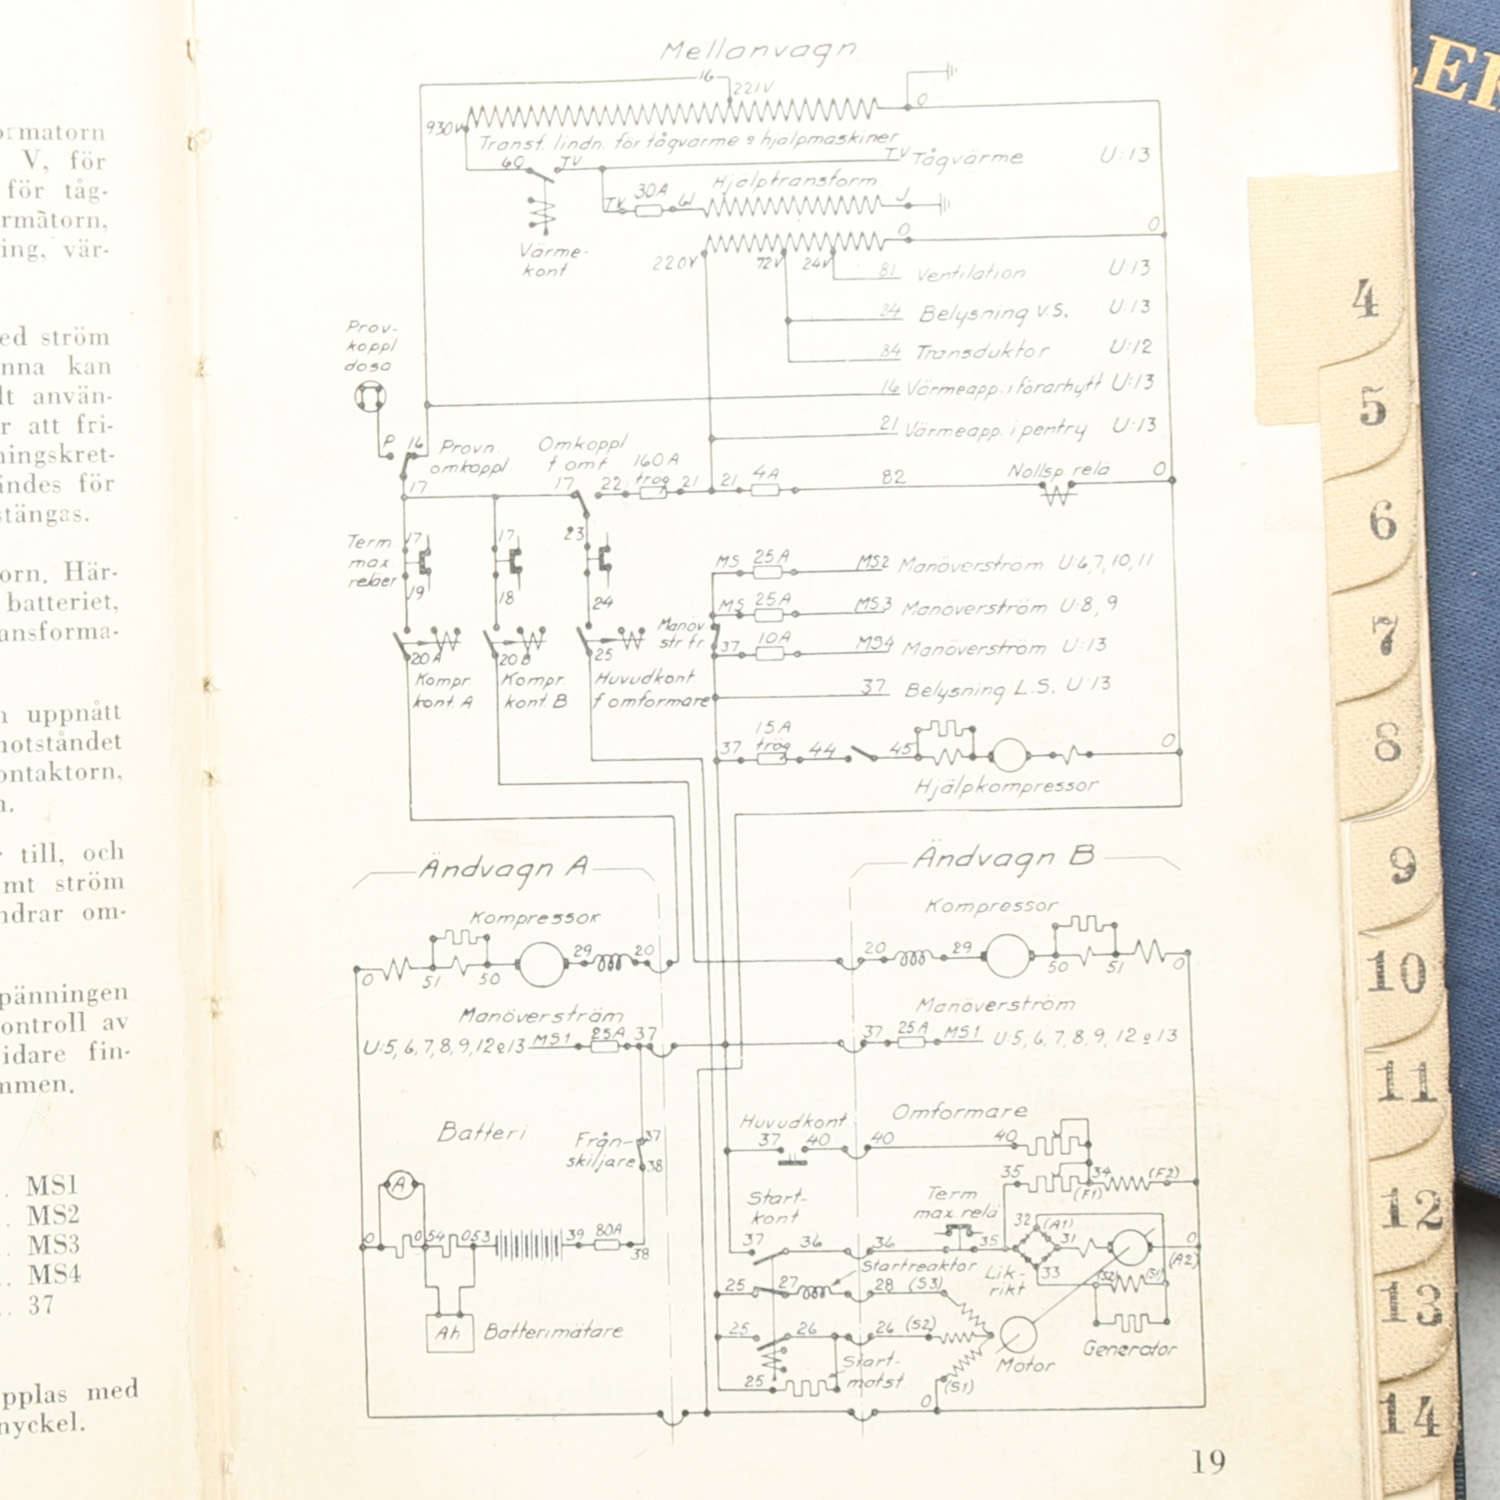 V, för
för tåg-
ing, vär-
ed ström
nna kan
lt använ-
r att fri-
ningskret-
indes för
stängas.
orn. Här-
batteriet,
uppnått
notståndet
till, och
mt ström
ndrar om-
pänningen
ontroll av
idare fin-
mmen.
MS1
MS2
MS3
MS4
37
pplas med
nyckel.
Mellanvagn
16
221V
0
930V
Transf. lindn. för tågvärme o hjälpmaskiner
60 TV
TV Tågvärme U:13
Hjälptransform
TV 30A W J
Värme-
kont
0 0
220V 72V 24V
81 Ventilation U:13
84 Belysning V.S. U:13
84 Transduktor U:12
16 Värmeapp. i förarhytt U:13
21 Värmeapp. i pentry U:13
Prov-
koppl
dosa
P 16
Provn.
omkoppl
Omkoppl
f omf
160A
trög
17 17 22 21 21 4A 82
Nollsp. relä 0
Term
max
reläer
17 17 23
19 18 24
20A 20B 25
Kompr.
kont. A
Kompr.
kont B
Huvudkont
f omformare
Manöv.
str fr.
MS 25A MS2 Manöverström U:6,7,10,11
MS 25A MS3 Manöverström U:8,9
37 10A MS4 Manöverström U:13
37 Belysning L.S. U:13
15A
37 trög 44 45 0
Hjälpkompressor
Ändvagn A
Ändvagn B
Kompressor
0 51 50 29 20
Kompressor
20 29 50 51 0
Manöverström
U:5,6,7,8,9,12 o 13 MS1 25A 37
Manöverström
37 25A MS1 U:5,6,7,8,9,12 o 13
Batteri
Från-
skiljare
37
38
A
0 054 053 39 80A 38
Ah Batterimätare
Huvudkont
37 40
Omformare
40 40
35 (F1) 34 (F2)
Start-
kont
Term
max. relä
37 36 36 35
32 (A1)
31
33
Lik-
rikt
0
(A2)
(S2) (S1)
Startreaktor
25 27 28 (S3)
25 26 26 (S2)
25
Start-
motst.
Motor
Generator
(S1)
0
19
4
5
6
7
8
9
10
11
12
13
14